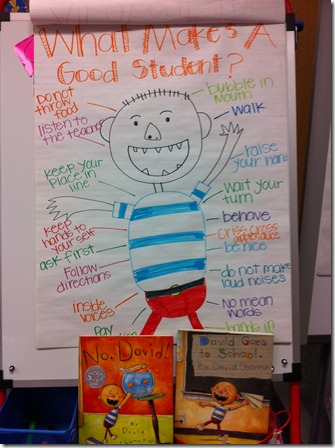 What Makes A
Good Student?
DO NOT
throw
food
listen to
the teacher
keep your
place in
line
keep
hands to
your self
ask first
Follow
directions
inside
voices
Pay
bubble in
mouth
walk
raise
your hand
wait your
turn
behave
criss cross
applesauce
be nice
do not make
loud noises
No mean
words
hands in
No, David!
David Goes
to School
By David Shannon